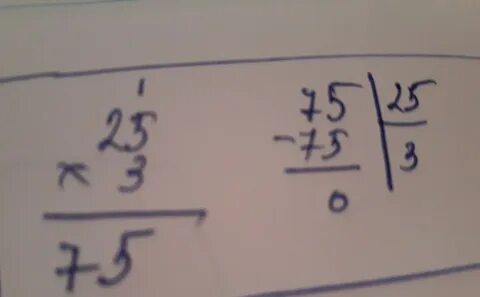 1
25
× 3
75
75 25
-75 3
0